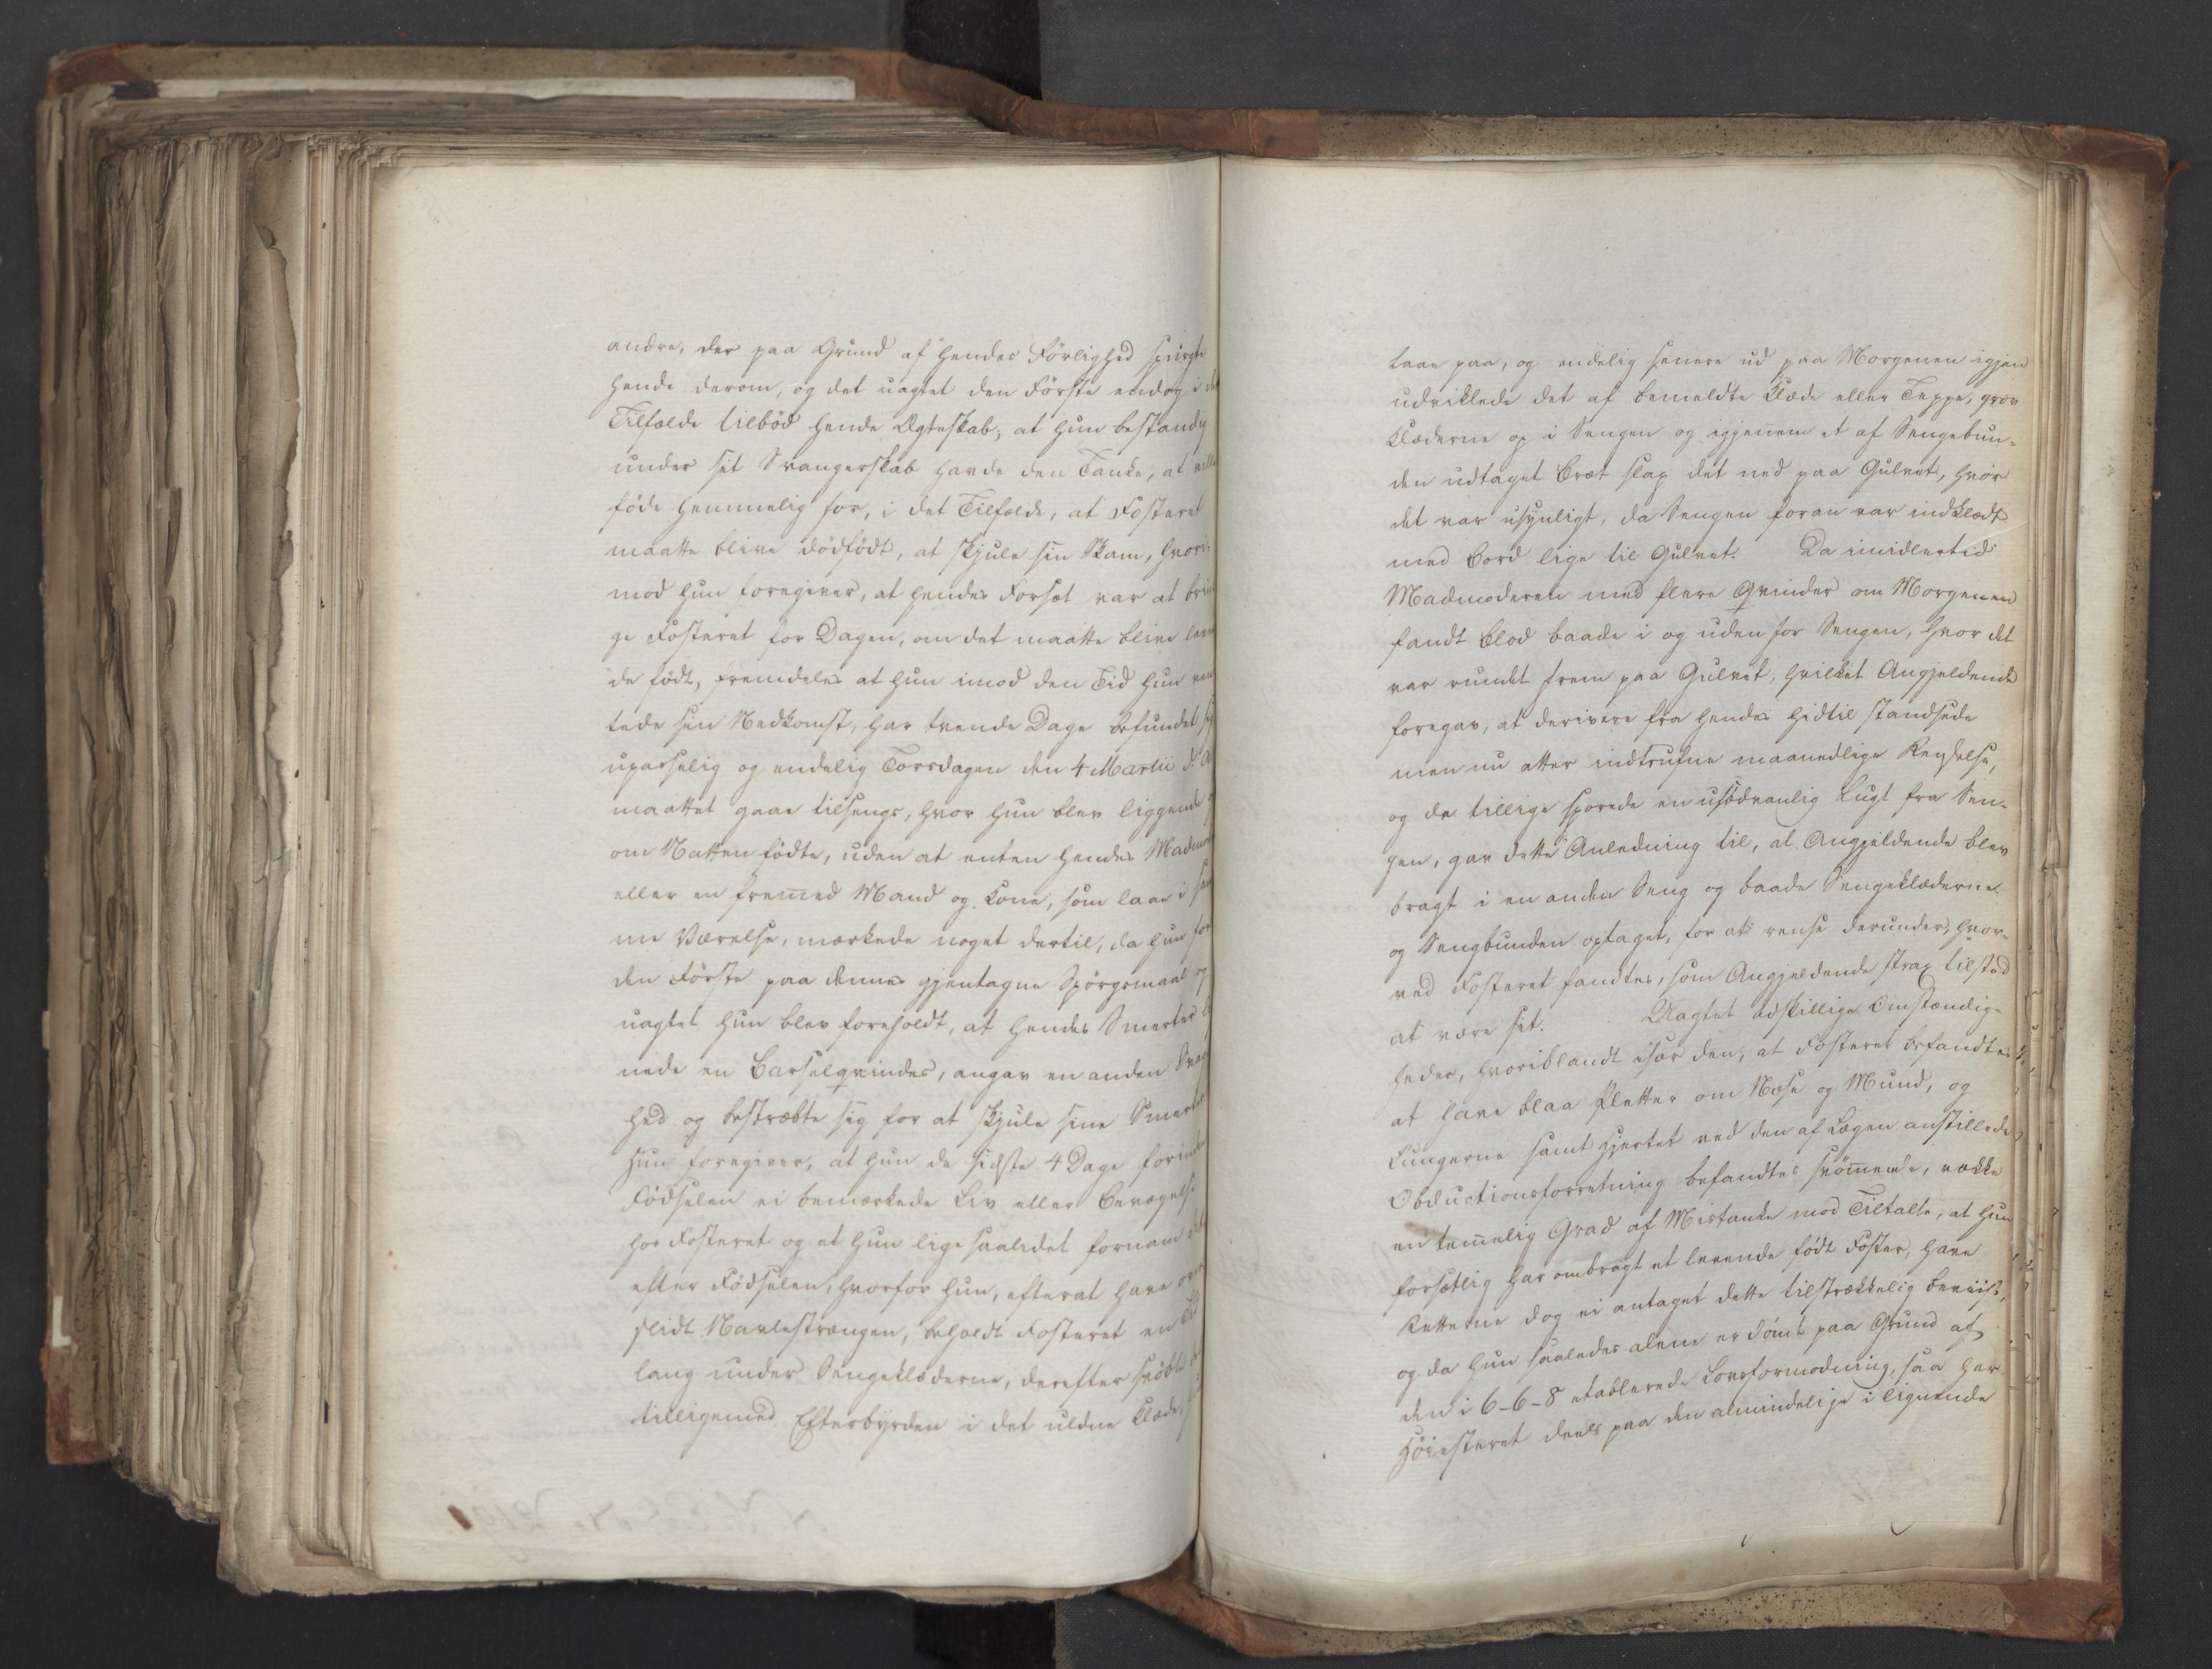 andre, der paa Grund af hendes Førlighed spurgte
hende derom, og det uagtet den Første endog i det
Tilfælde tilbød hende Ægteskab, at hun bestandig
under sit Svangerskab havde den Tanke, at ville
føde hemmelig for, i det Tilfælde, at Fosteret
maatte blive dødfødt, at skjule sin Skam, hvori-
mod hun foregiver, at hendes Forsæt var at brin
ge Fosteret for Dagen, om det maatte blive leven
de født, fremdeles at hun imod den Tid hun ven
tede sin Nedkomst, har trende Dage befundet sig
upasselig og endelig Torsdagen den 4 Martii d. A
maattet gaae tilsengs, hvor hun blev liggende og
om Natten fødte, uden at enten hendes Madmoder
eller en fremed Mand og Kone, som laae i sam
me Værelse, mærkede noget dertil, da hun for
den Første paa dennes gjentagne Spørgsmaal og
uagtet hun blev foreholdt, at hendes Smerter lig
nede en Barselqvindes, angav en anden Svag
hed og bestræbte sig for at skjule sine Smerter
Hun foregiver, at hun de sidste 4 Dage forinden
Fødselen ei bemærkede Liv eller Bevægelse
hos Fosteret og at hun ligesaalidet fornam det
efter Fødselen, hvorfor hun, efterat have over
slidt Navlestrængen, beholdt Fosteret en Tid
lang under Sengeklæderne, derefter svøbte det
tilligemed Efterbyrden i det uldne Klæde,
laae paa, og endelig senere ud paa Morgenen igjen
udviklede det af bemeldte Klæde eller Teppe, grov
Klæderne op i Sengen og igjennem et af Sengebun-
den udtaget Bræt slap det ned paa Gulvet, hvor
det var usynligt, da Sengen foran var indklædt
med Bord lige til Gulvet. Da imidlertid
Madmoderen med flere Qvinder om Morgenen
fandt Blod baade i og uden for Sengen, hvor det
var rundt frem paa Gulvet, hvilket Angjeldende
foregav, at derivere fra hendes hidtil standsede
men nu atter indtrufne maanedlige Rendelse,
og de tillige sporede en usædvanlig Lugt fra Sen-
gen, gav dette Anledning til, at Angjeldende blev
bragt i en anden Seng og baade Sengeklæderne
og Sengbunden optaget, for at rense derunder, hvor-
ved Fosteret fandtes, som Angjeldende strax tilstod
at være sit. Uagtet adskillige Omstændig-
heder, hvoriblandt især den, at Fosteret befandtes
at have blaa Pletter om Næse og Mund, og
Lungerne samt Hjertet ved den af Lægen anstillede
Obductionsforretning befandtes svømmende, vække
en temelig Grad af Mistanke mod Tiltalte, at hun
forsætlig har ombragt et levende født Foster, have
Retterne dog ei antaget dette tilstrækkelig beviist,
og da hun saaledes alene er dømt paa Grund af
den i 6-6-8 etablerede Lovformodning, saa har
Høiesteret deels paa den almindelige i lignende